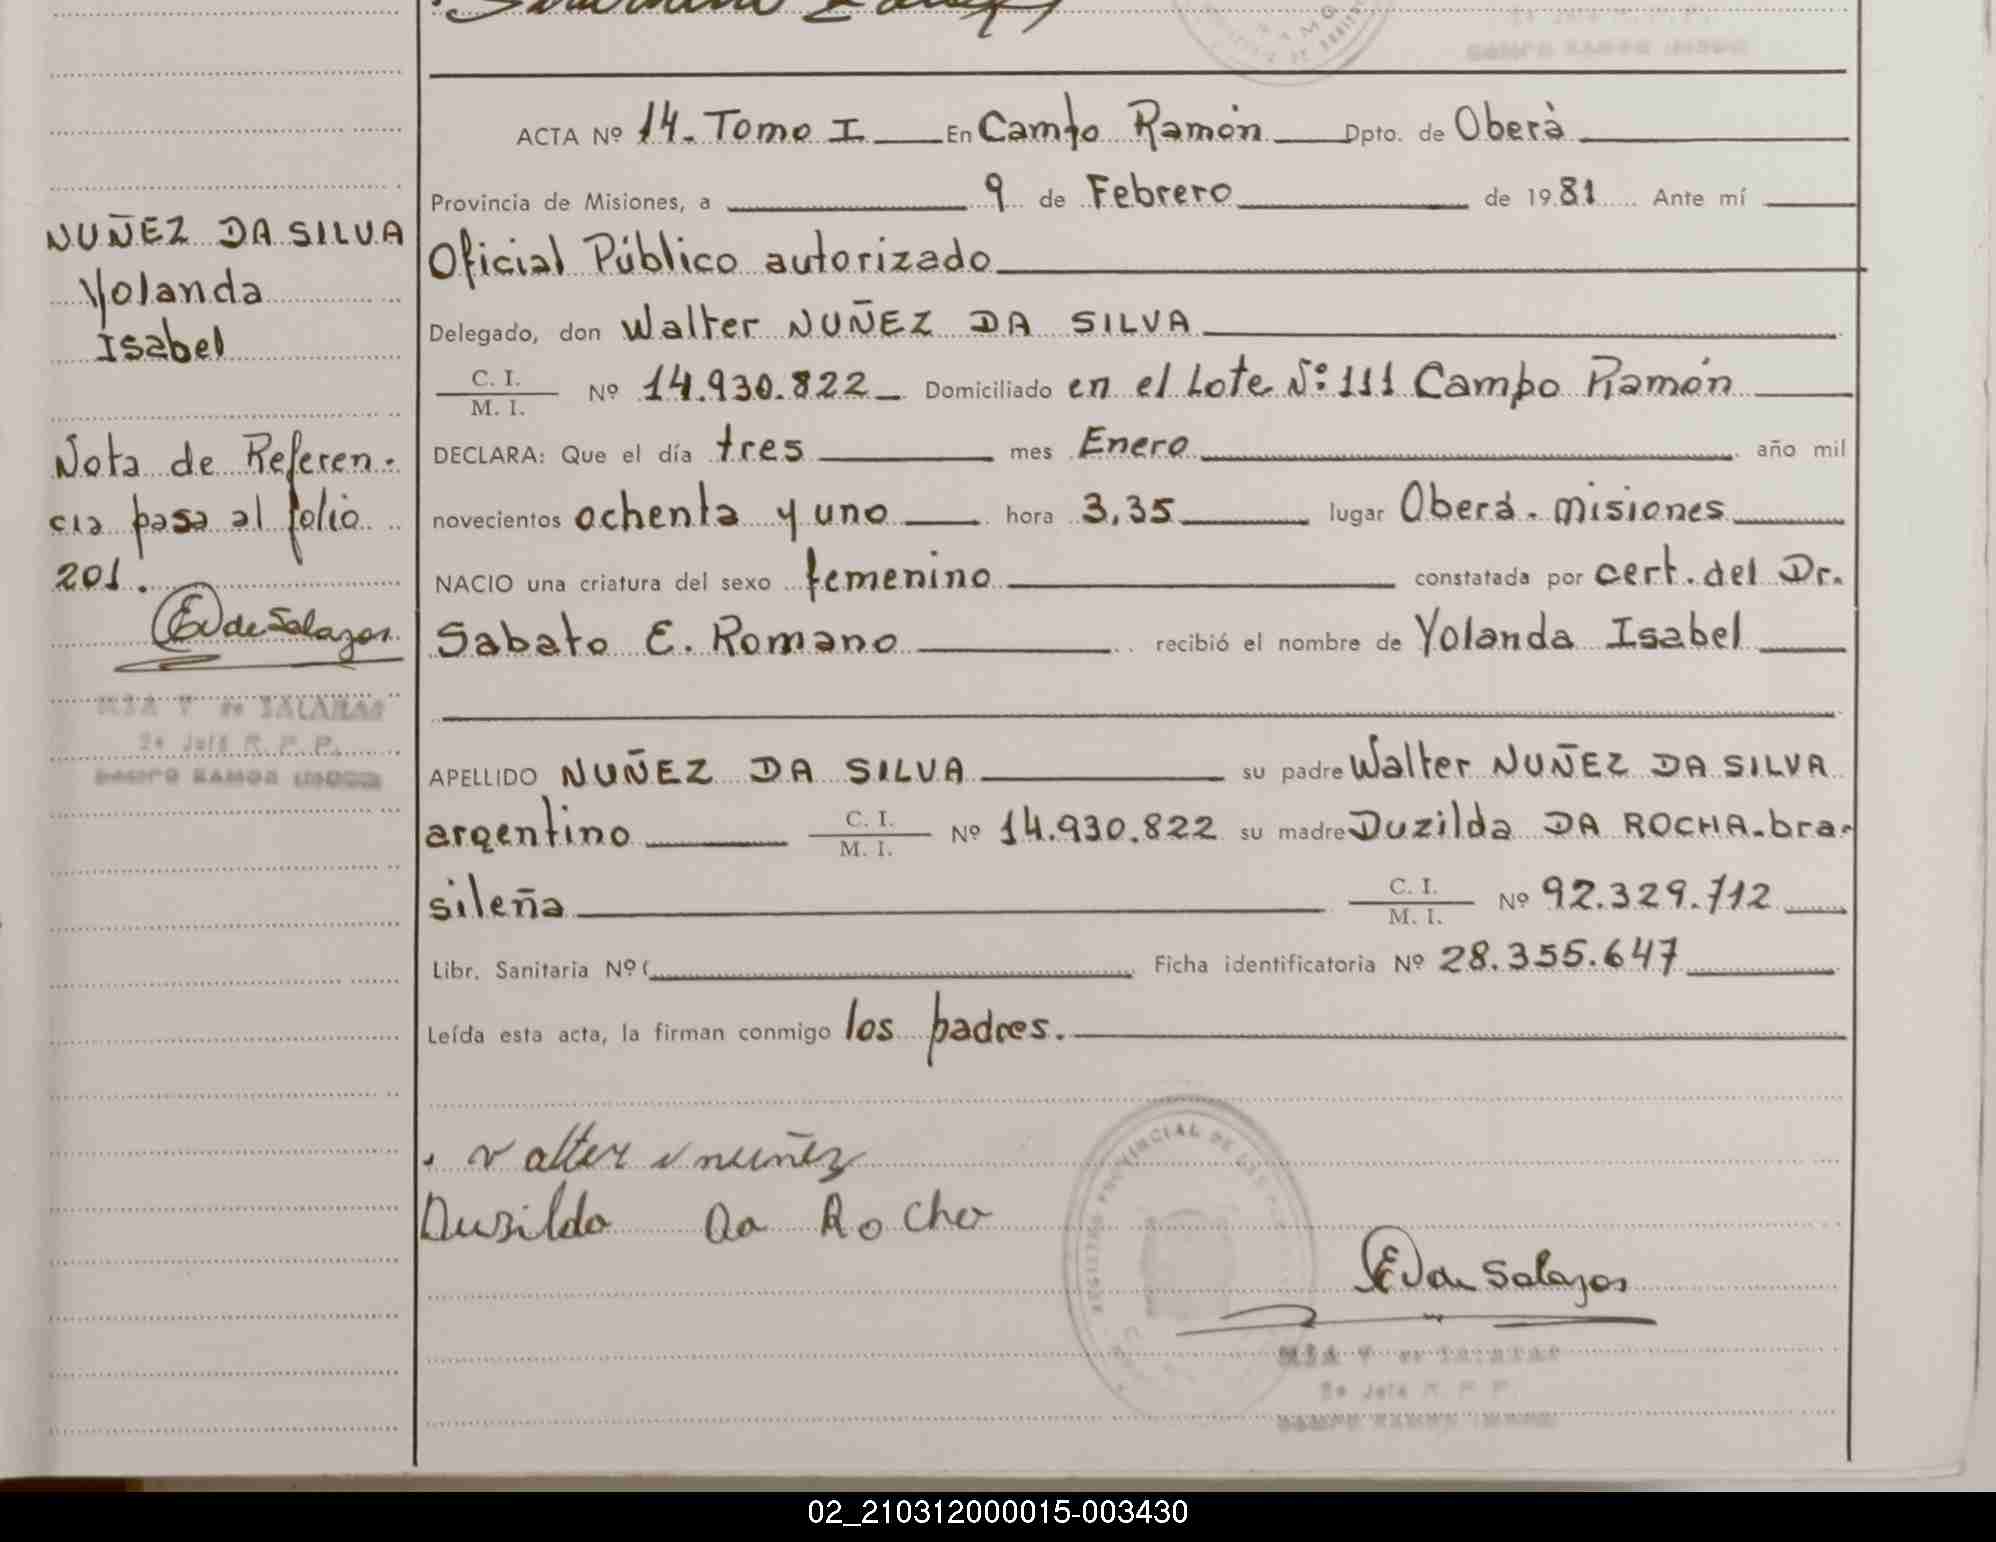 NUÑEZ DA SILVA
Yolanda
Isabel
Nota de Referen-
cia pasa al folio
201.
EV de Salazar
2a Jefe R. P. P.
ACTA Nº 14. Tomo I En Campo Ramón Dpto. de Oberà
Provincia de Misiones, a 9 de Febrero de 1981 Ante mí
Oficial Público autorizado
Delegado, don Walter NUÑEZ DA SILVA
C. I.
M. I. Nº 14.930.822 Domiciliado en el Lote Nº: 111 Campo Ramón
DECLARA: Que el día tres mes Enero año mil
novecientos ochenta y uno hora 3,35 lugar Oberá. Misiones
NACIO una criatura del sexo femenino constatada por cert. del Dr.
Sabato E. Romano recibió el nombre de Yolanda Isabel
APELLIDO NUÑEZ DA SILVA su padre Walter NUÑEZ DA SILVA
argentino C. I.
M. I. Nº 14.930.822 su madre Duzilda DA ROCHA-bra-
sileña C. I.
M. I. Nº 92.329.712
Libr. Sanitaria Nº Ficha identificatoria Nº 28.355.647
Leída esta acta, la firman conmigo los padres.
Valter nuñez
Duzilda Da Rocha
EV de Salazar
2a Jefe R. P. P.
02_210312000015-003430